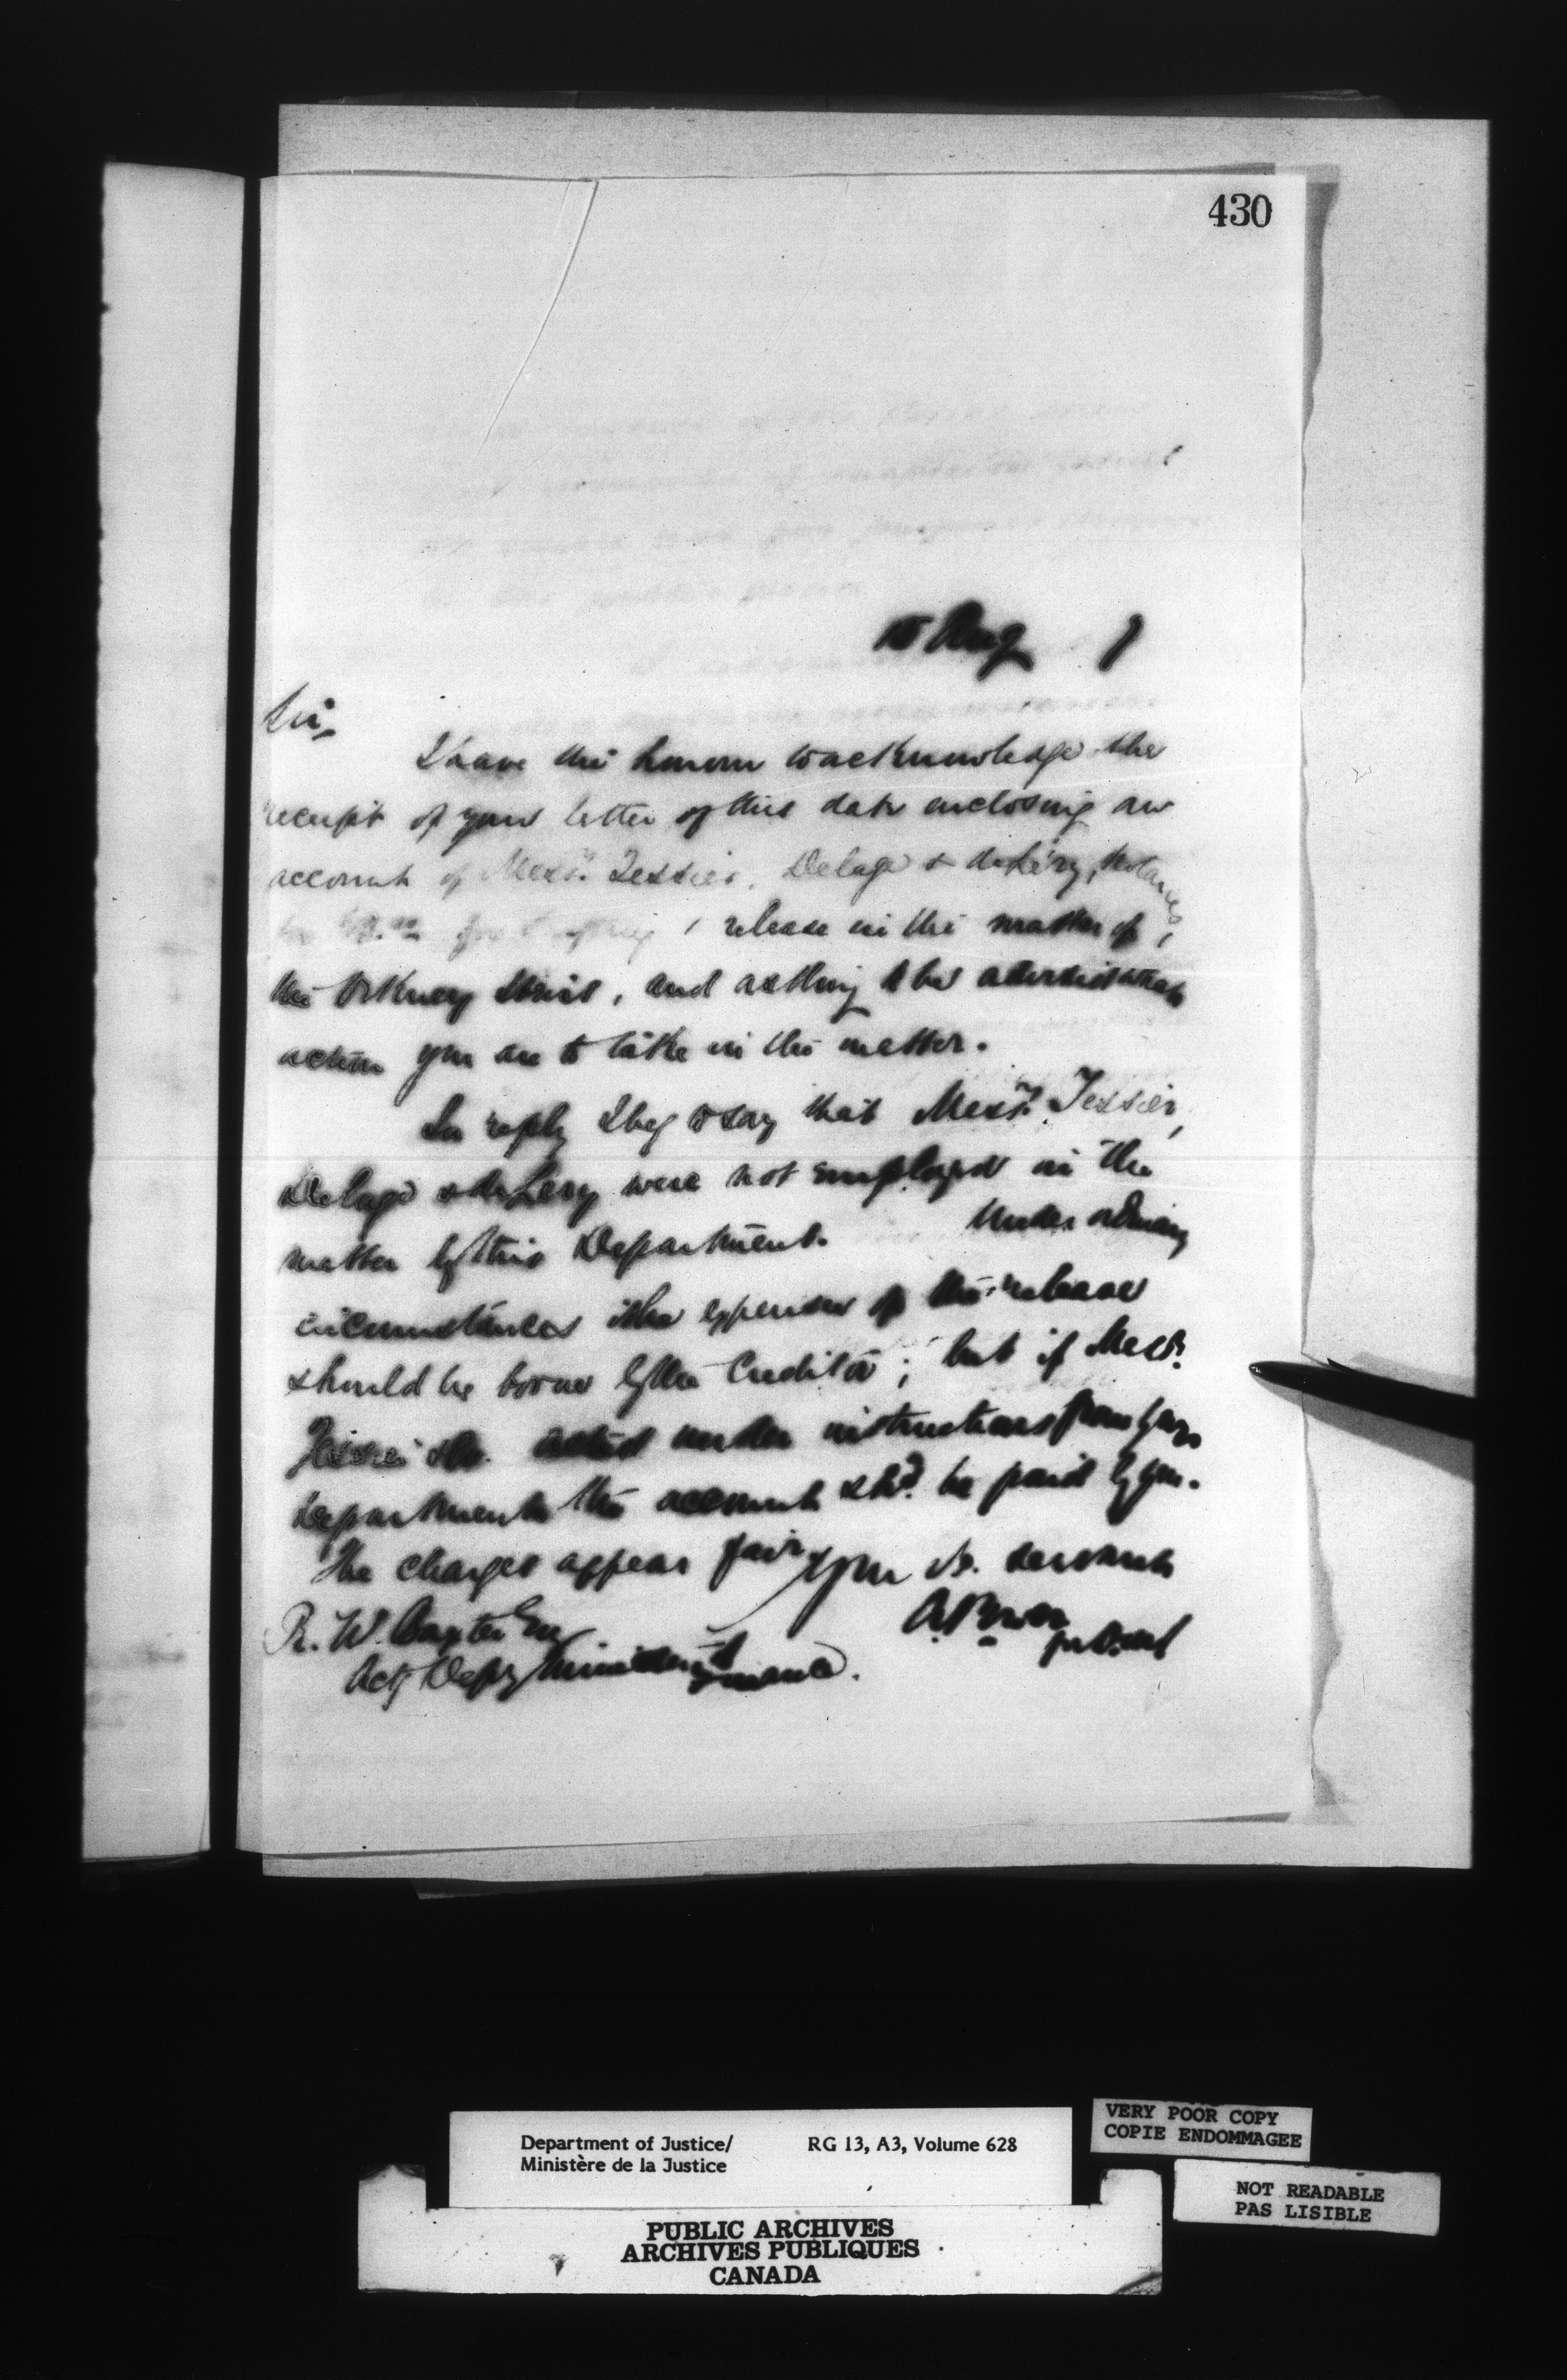 430
15 Aug 7
Sir,
I have the honour to acknowledge the
receipt of your letter of this date enclosing an
account of Messrs. Tessier, Delage & deLéry, Notaries,
for release in the matter of
the Orkney and asking to be advised what
action you are to take in the matter.
In reply I beg to say that Messrs. Tessier,
Delage & deLery were not employed in the
matter by this Department. Under ordinary
circumstances the expenses of the release
should be borne by the Creditor; but if Messrs.
Tessier &c. acted under instructions from your
Department the account shd. be paid by you.
The charges appear fair
Your ob. servant
R. W. Baxter Esq
A. Power
Actg Depy Minister of Finance.
Department of Justice/ RG 13, A3, Volume 628
Ministère de la Justice
VERY POOR COPY
COPIE ENDOMMAGEE
NOT READABLE
PAS LISIBLE
PUBLIC ARCHIVES
ARCHIVES PUBLIQUES
CANADA